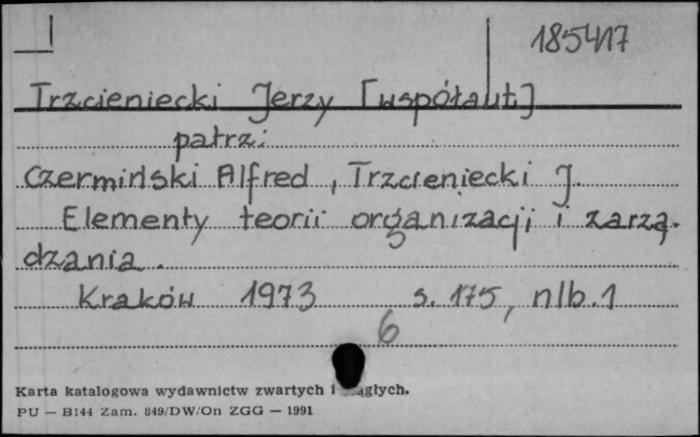 185417
Trzcieniecki Jerzy [współaut.]
patrz:
Czermiński Alfred, Trzcieniecki J.
Elementy teorii organizacji i zarzą-
dzania.
Kraków 1973 s. 175, nlb. 1
6
Karta katalogowa wydawnictw zwartych i ciągłych.
PU — B144 Zam. 849/DW/On ZGG — 1991